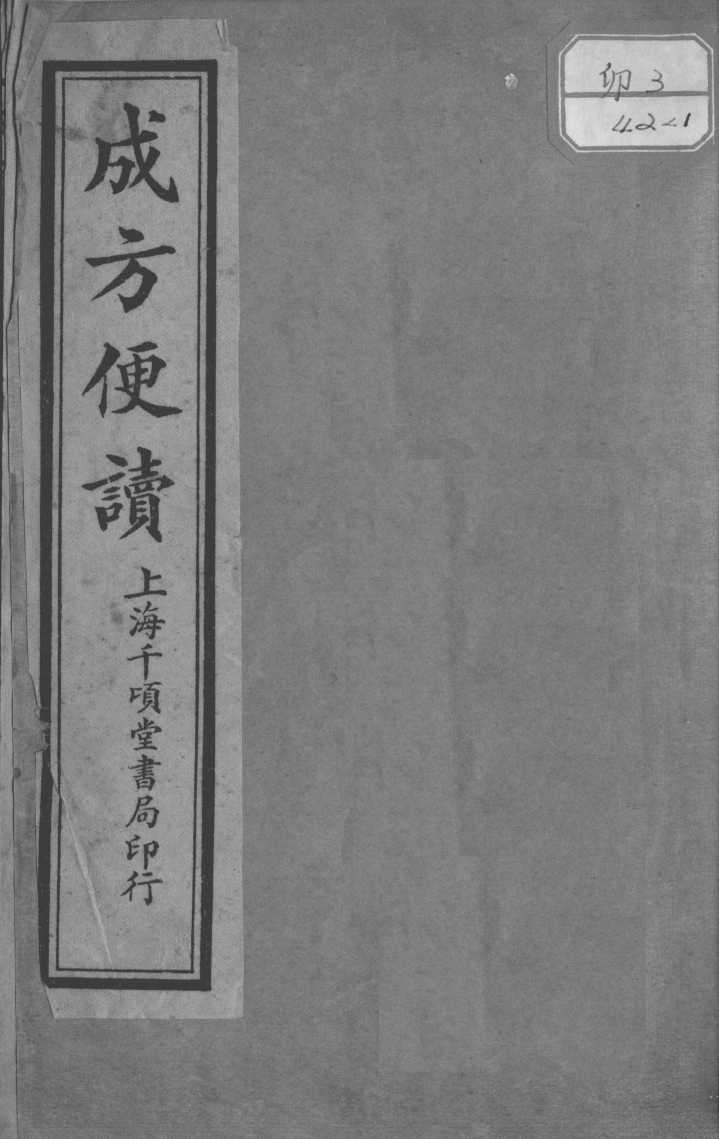 成方便讀
上海千頃堂書局印行
卯3
42-1